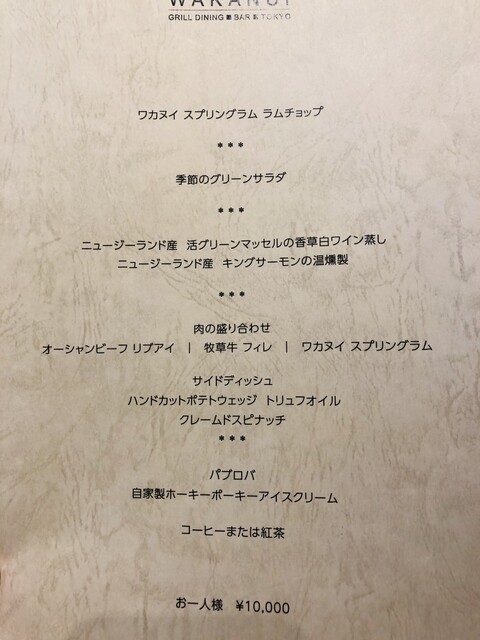 WAKANUI
GRILL DINING BAR TOKYO
ワカヌイ スプリングラム ラムチョップ
***
季節のグリーンサラダ
***
ニュージーランド産 活グリーンマッセルの香草白ワイン蒸し
ニュージーランド産 キングサーモンの温燻製
***
肉の盛り合わせ
オーシャンビーフ リブアイ | 牧草牛 フィレ | ワカヌイ スプリングラム
サイドディッシュ
ハンドカットポテトウェッジ トリュフオイル
クレームドスピナッチ
***
パブロバ
自家製ホーキーポーキーアイスクリーム
コーヒーまたは紅茶
お一人様 ¥10,000